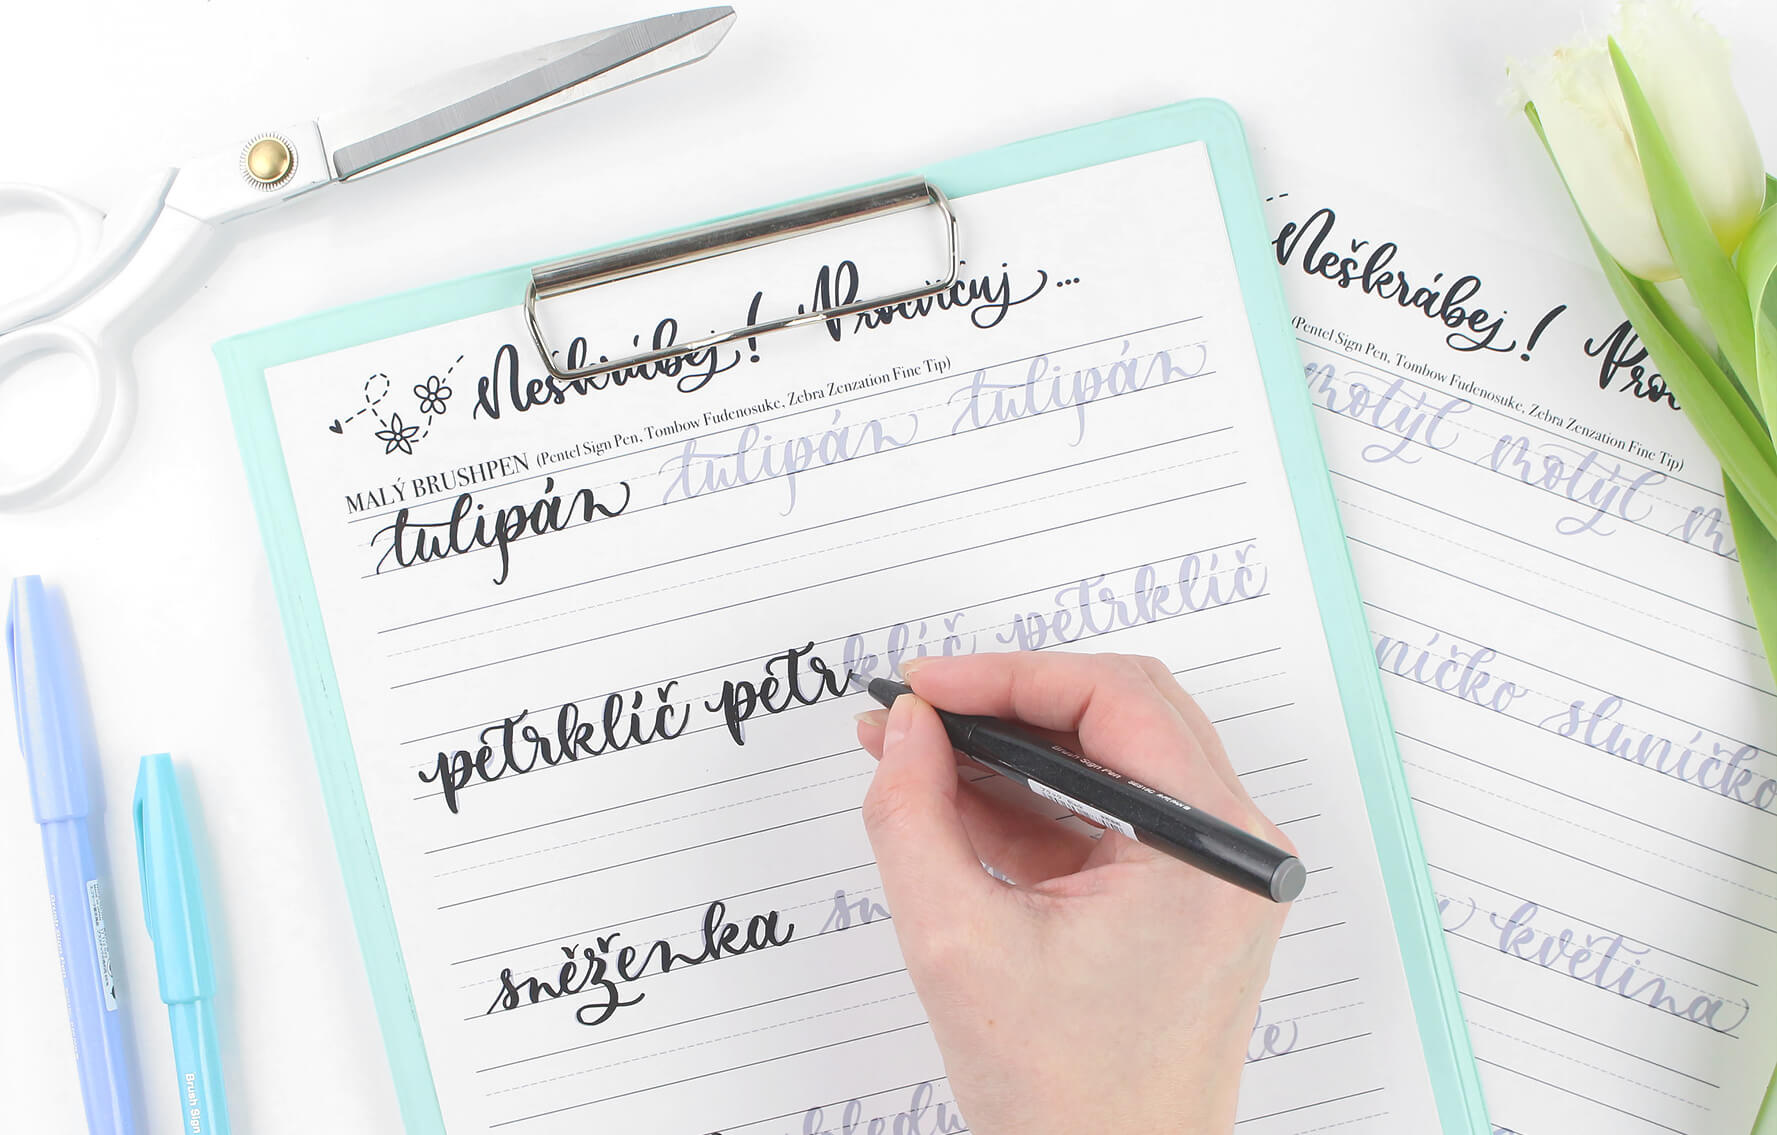 Neškrábej! Procvičuj...
MALÝ BRUSHPEN (Pentel Sign Pen, Tombow Fudenosuke, Zebra Zenzation Fine Tip)
tulipán tulipán tulipán
petrklíč petrklíč petrklíč
sněženka sn
Neškrábej!
(Pentel Sign Pen, Tombow Fudenosuke, Zebra Zenzation Fine Tip)
motýl motýl m
níčko sluníčko
květina
Brush Sign Pen
Brush Sign